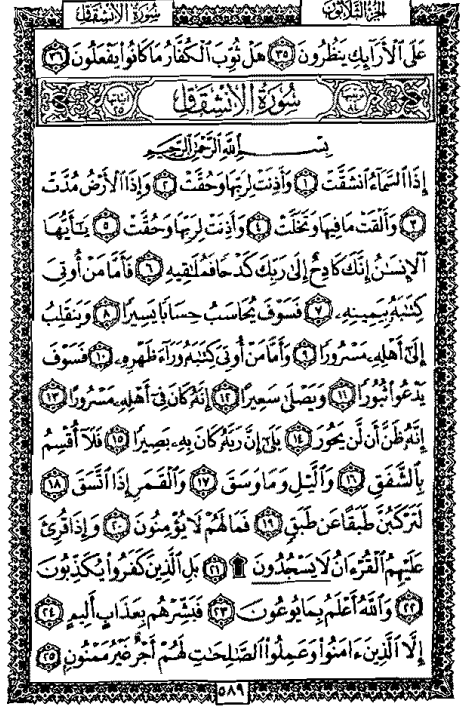 سُورَةُ الانشِقَاقِ الجُزْءُ الثَّلَاثُونَ
عَلَى ٱلْأَرَآئِكِ يَنظُرُونَ ٣٥ هَلْ ثُوِّبَ ٱلْكُفَّارُ مَا كَانُوا۟ يَفْعَلُونَ ٣٦
سُورَةُ الانشِقَاقِ
بِسْمِ ٱللَّهِ ٱلرَّحْمَٰنِ ٱلرَّحِيمِ
إِذَا ٱلسَّمَآءُ ٱنشَقَّتْ ١ وَأَذِنَتْ لِرَبِّهَا وَحُقَّتْ ٢ وَإِذَا ٱلْأَرْضُ مُدَّتْ
٣ وَأَلْقَتْ مَا فِيهَا وَتَخَلَّتْ ٤ وَأَذِنَتْ لِرَبِّهَا وَحُقَّتْ ٥ يَٰٓأَيُّهَا
ٱلْإِنسَٰنُ إِنَّكَ كَادِحٌ إِلَىٰ رَبِّكَ كَدْحًا فَمُلَٰقِيهِ ٦ فَأَمَّا مَنْ أُوتِىَ
كِتَٰبَهُۥ بِيَمِينِهِۦ ٧ فَسَوْفَ يُحَاسَبُ حِسَابًا يَسِيرًا ٨ وَيَنقَلِبُ
إِلَىٰٓ أَهْلِهِۦ مَسْرُورًا ٩ وَأَمَّا مَنْ أُوتِىَ كِتَٰبَهُۥ وَرَآءَ ظَهْرِهِۦ ١٠ فَسَوْفَ
يَدْعُوا۟ ثُبُورًا ١١ وَيَصْلَىٰ سَعِيرًا ١٢ إِنَّهُۥ كَانَ فِىٓ أَهْلِهِۦ مَسْرُورًا ١٣
إِنَّهُۥ ظَنَّ أَن لَّن يَحُورَ ١٤ بَلَىٰٓ إِنَّ رَبَّهُۥ كَانَ بِهِۦ بَصِيرًا ١٥ فَلَآ أُقْسِمُ
بِٱلشَّفَقِ ١٦ وَٱلَّيْلِ وَمَا وَسَقَ ١٧ وَٱلْقَمَرِ إِذَا ٱتَّسَقَ ١٨
لَتَرْكَبُنَّ طَبَقًا عَن طَبَقٍ ١٩ فَمَا لَهُمْ لَا يُؤْمِنُونَ ٢٠ وَإِذَا قُرِئَ
عَلَيْهِمُ ٱلْقُرْءَانُ لَا يَسْجُدُونَ ۩ ٢١ بَلِ ٱلَّذِينَ كَفَرُوا۟ يُكَذِّبُونَ
٢٢ وَٱللَّهُ أَعْلَمُ بِمَا يُوعُونَ ٢٣ فَبَشِّرْهُم بِعَذَابٍ أَلِيمٍ ٢٤
إِلَّا ٱلَّذِينَ ءَامَنُوا۟ وَعَمِلُوا۟ ٱلصَّٰلِحَٰتِ لَهُمْ أَجْرٌ غَيْرُ مَمْنُونٍۭ ٢٥
٥٨٩